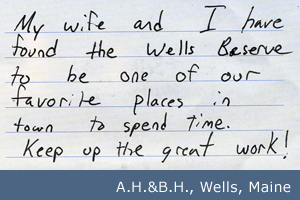 My wife and I have
found the Wells Reserve
to be one of our
favorite places in
town to spend time.
Keep up the great work!
A.H.&B.H., Wells, Maine